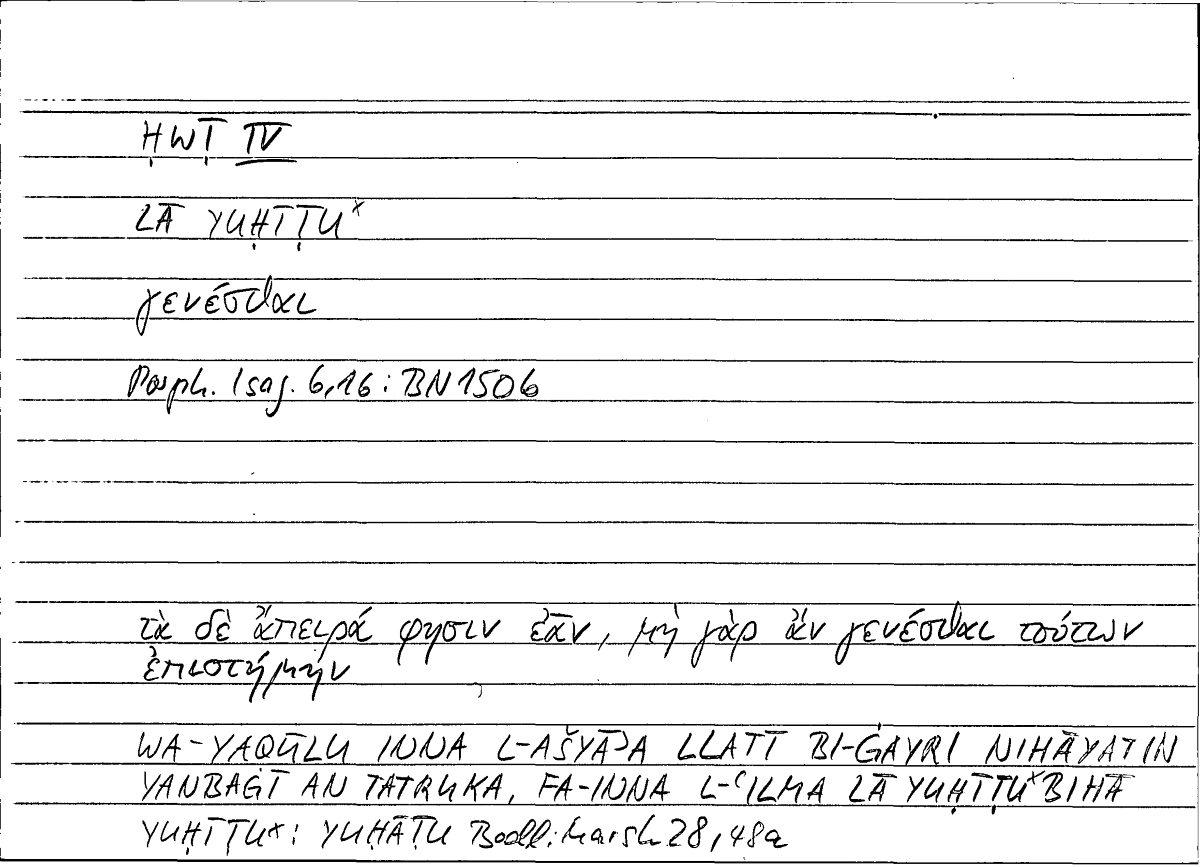 ḤWṬ IV
LĀ YUḤĪṬU×
γενέσθαι
Porph. Isag. 6,16: BN 1506
τὰ δὲ ἄπειρά φησιν ἐᾶν, μὴ γὰρ ἂν γενέσθαι τούτων
ἐπιστήμην
WA-YAQŪLU INNA L-AŠYĀʾA LLATĪ BI-ĠAYRI NIHĀYATIN
YANBAĠĪ AN TATRUKA, FA-INNA L-ʿILMA LĀ YUḤĪṬU× BIHĀ
YUḤĪṬU×: YUḤĀṬU Bodl. Marsh 28, 48a